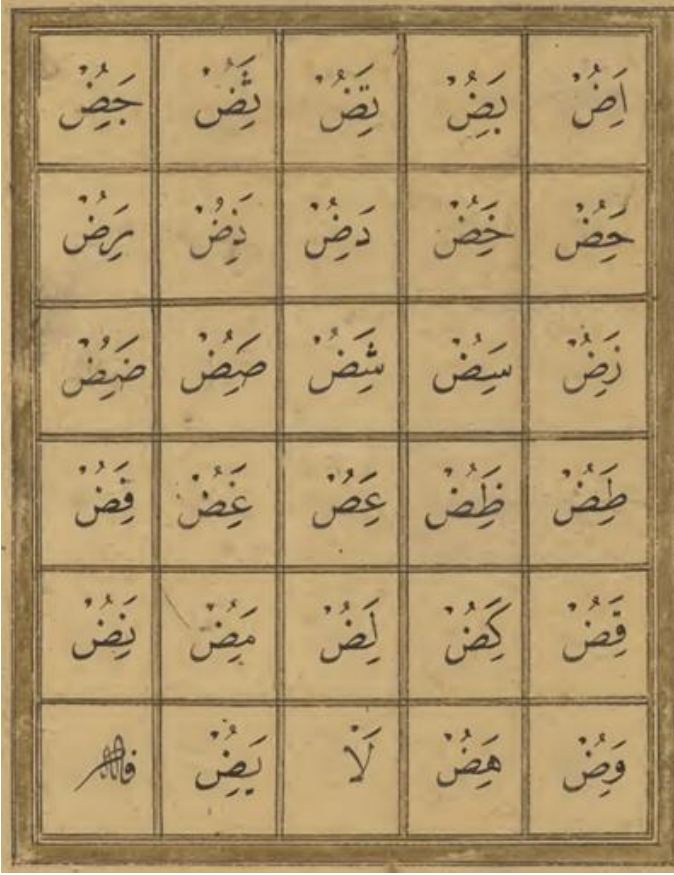 اَِضُْ بَِضُْ تَِضُْ ثَِضُْ جَِضُْ
حَِضُْ خَِضُْ دَِضُْ ذَِضُْ رَِضُْ
زَِضُْ سَِضُْ شَِضُْ صَِضُْ ضَِضُْ
طَِضُْ ظَِضُْ عَِصُْ غَِضُْ فَِضُْ
قَِضُْ كَِضُْ لَِضُْ مَِضُْ نَِضُْ
وَِضُْ هَِضُْ لَاْ يَِضُْ